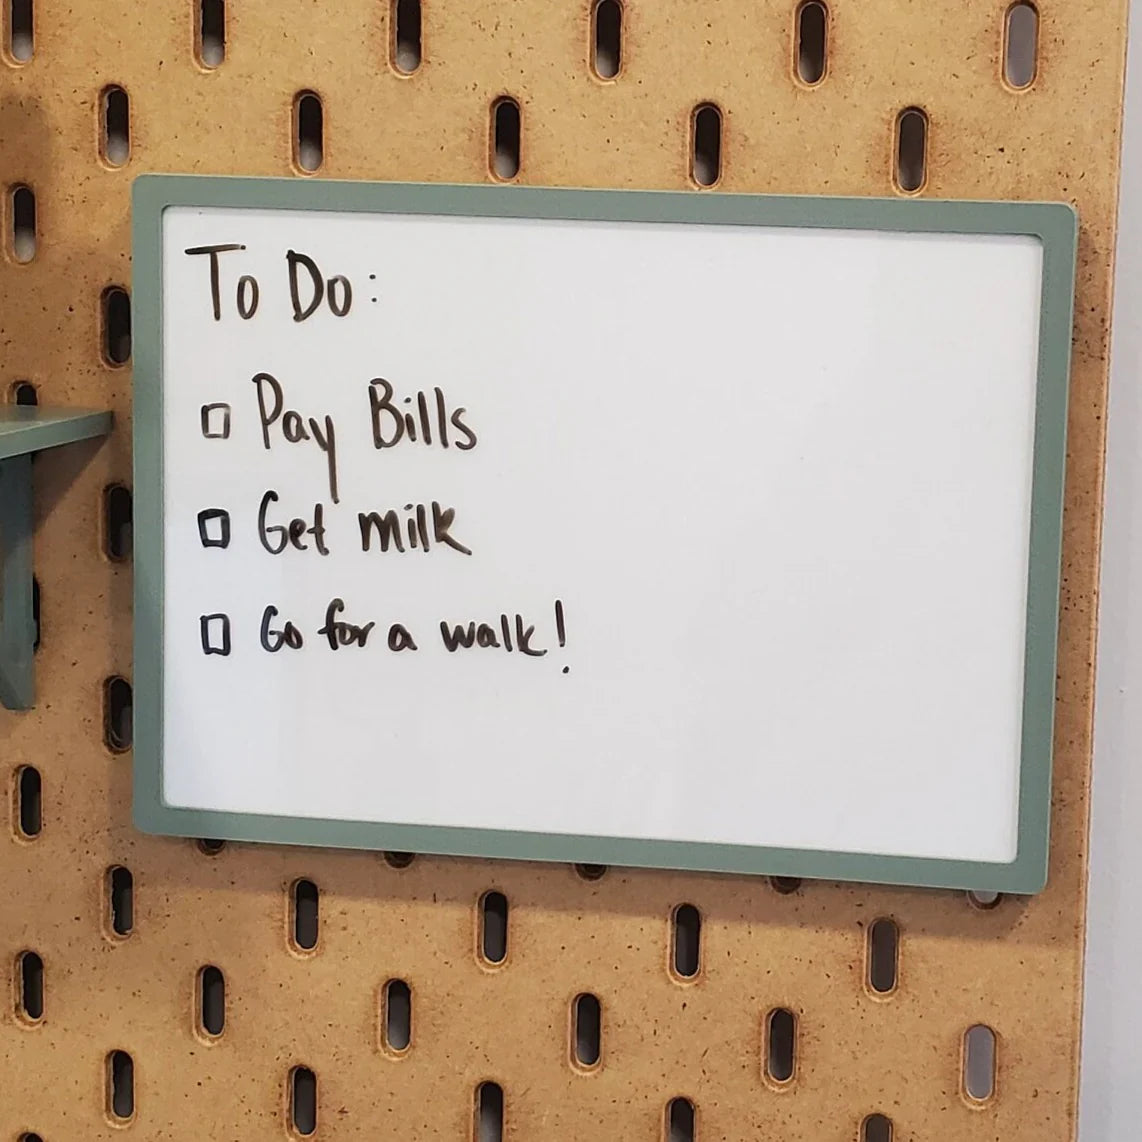 To Do:
□ Pay Bills
□ Get milk
□ Go for a walk!